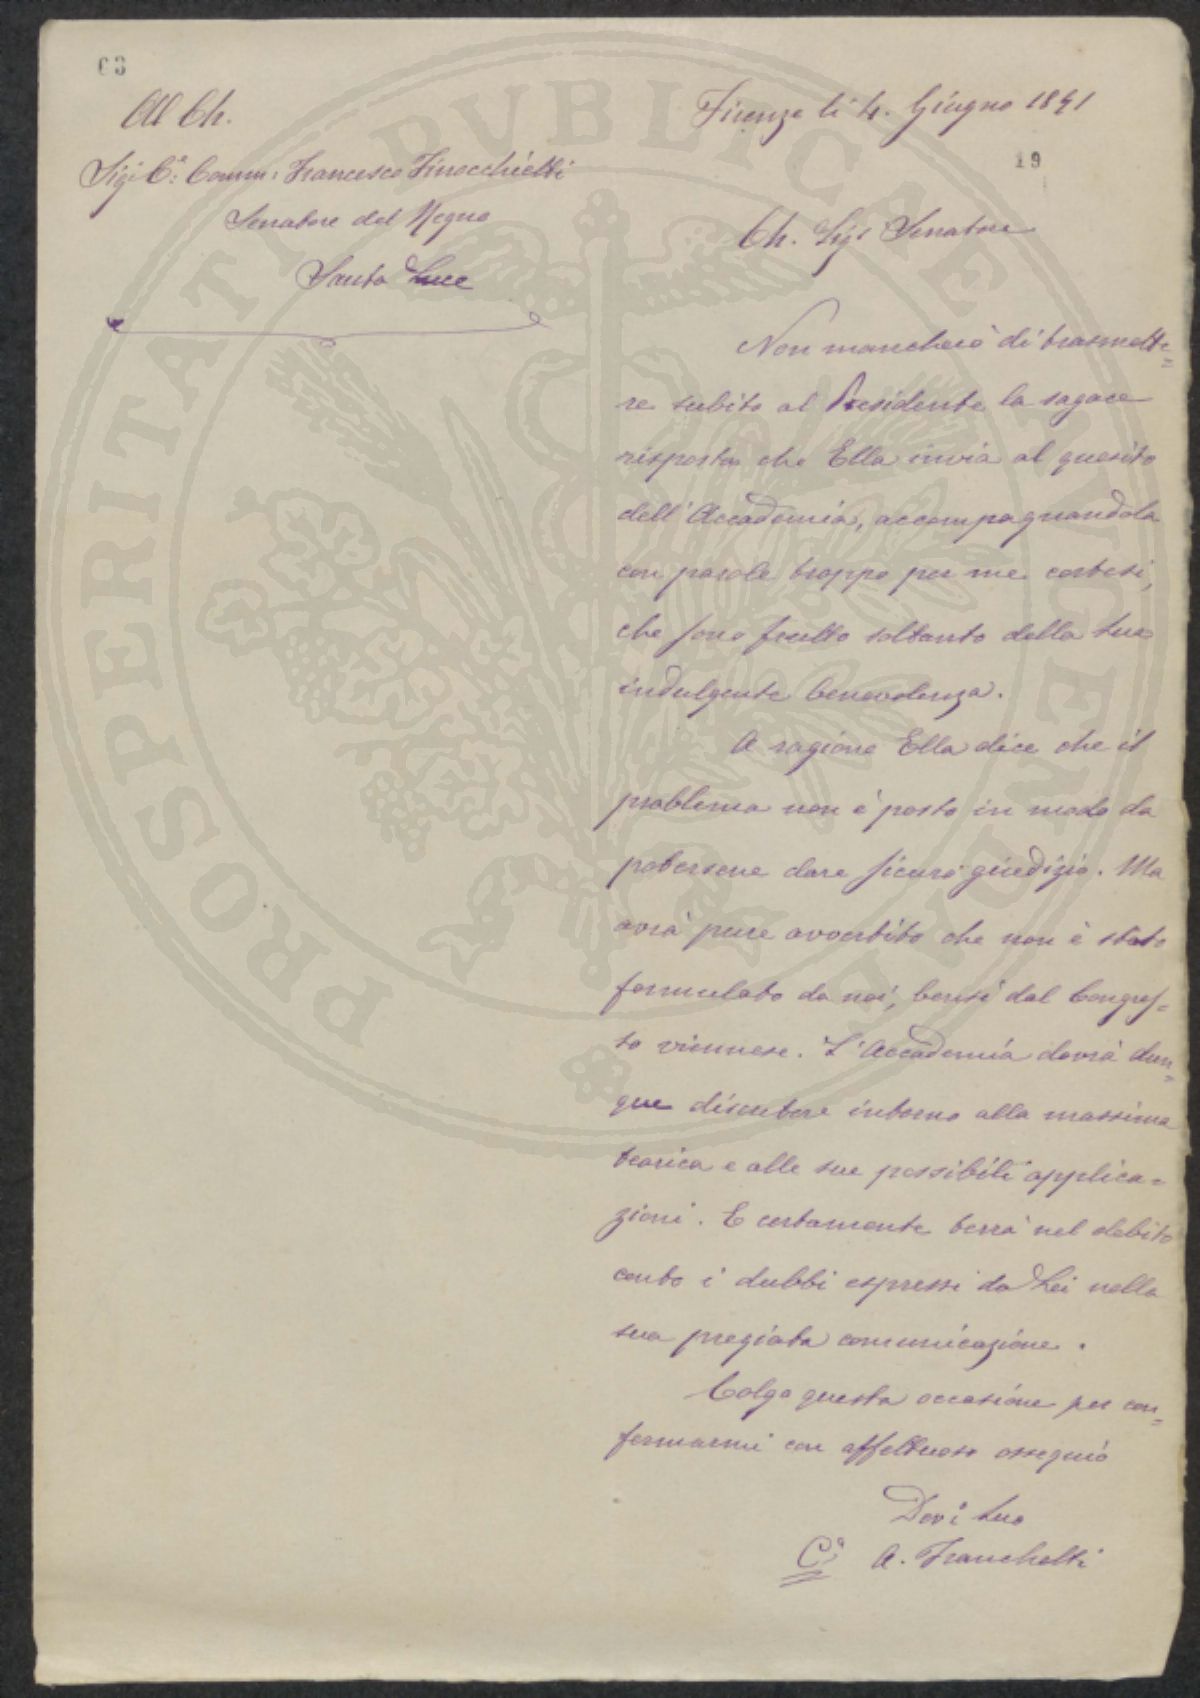 63
Al Ch.
Sig.r C.e Comm.e Francesco Finocchietti
Senatore del Regno
Santa Luce
Firenze li 4. Giugno 1891
19
Ch. Sig.r Senatore
Non mancherò di trasmette=
re subito al Presidente la sagace
risposta che Ella invia al quesito
dell'Accademia, accompagnandola
con parole troppo per me cortesi,
che sono frutto soltanto della sua
indulgente benevolenza.
A ragione Ella dice che il
problema non è posto in modo da
potersene dare sicuro giudizio. Ma
avrà pure avvertito che non è stato
formulato da noi, bensì dal Congres=
so viennese. L'Accademia dovrà dun=
que discutere intorno alla massima
teorica e alle sue possibili applica=
zioni. E certamente terrà nel debito
conto i dubbi espressi da Lei nella
sua pregiata comunicazione.
Colgo questa occasione per con=
fermarmi con affettuoso ossequio
Dev. Suo
C.o A. Franchetti
PROSPERITATI PVBLICAE AVGENDAE